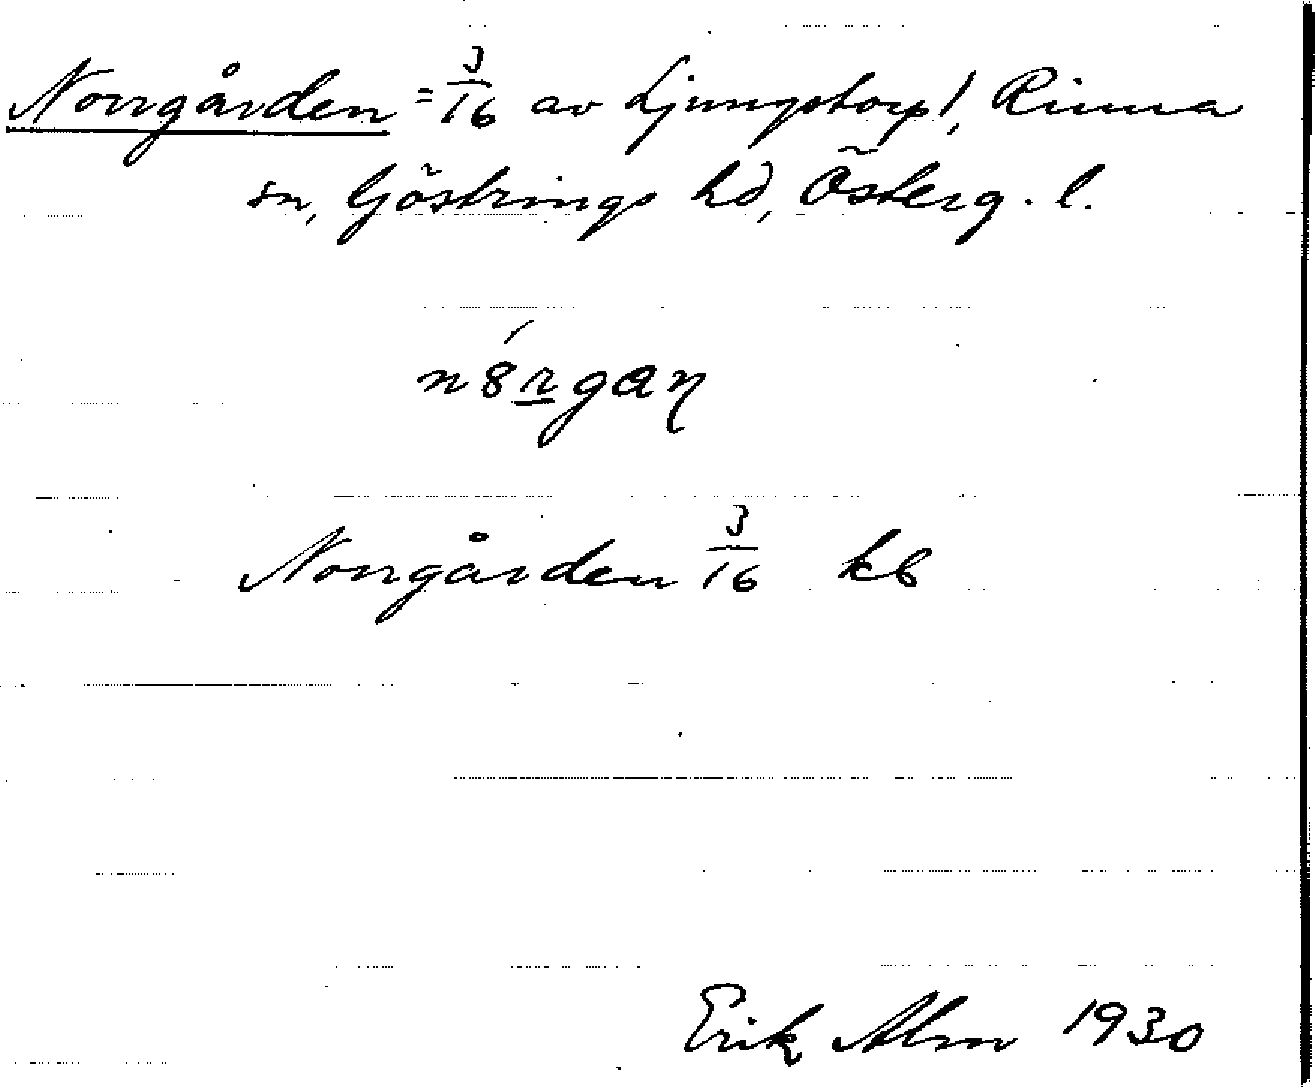 Norrgården = 3/16 av Ljungstorp!, Rinna
sn, Göstrings hd, Österg. l.
n8́rgaŋ
Norrgården 3/16 kb
Erik Alm 1930